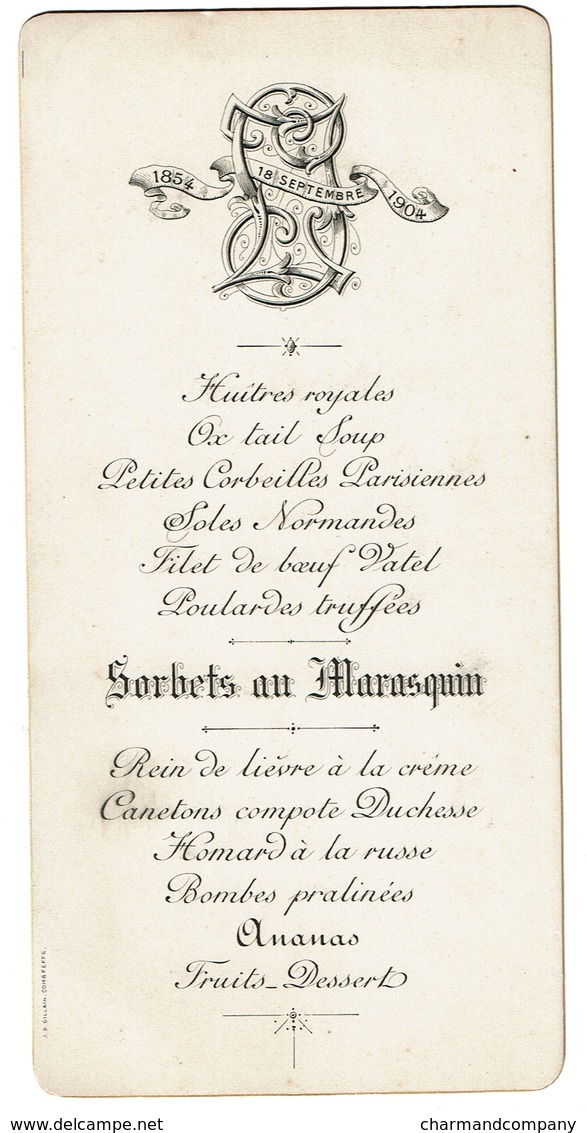 1854
18 SEPTEMBRE
1904
Huîtres royales
Ox tail Soup
Petites Corbeilles Parisiennes
Soles Normandes
Filet de bœuf Vatel
Poulardes truffées
Sorbets au Marasquin
Rein de lièvre à la crème
Canetons compote Duchesse
Homard à la russe
Bombes pralinées
Ananas
Fruits-Dessert
J. B. GILLAIN, SOMBREFFE.
delcampe.net
charmandcompany